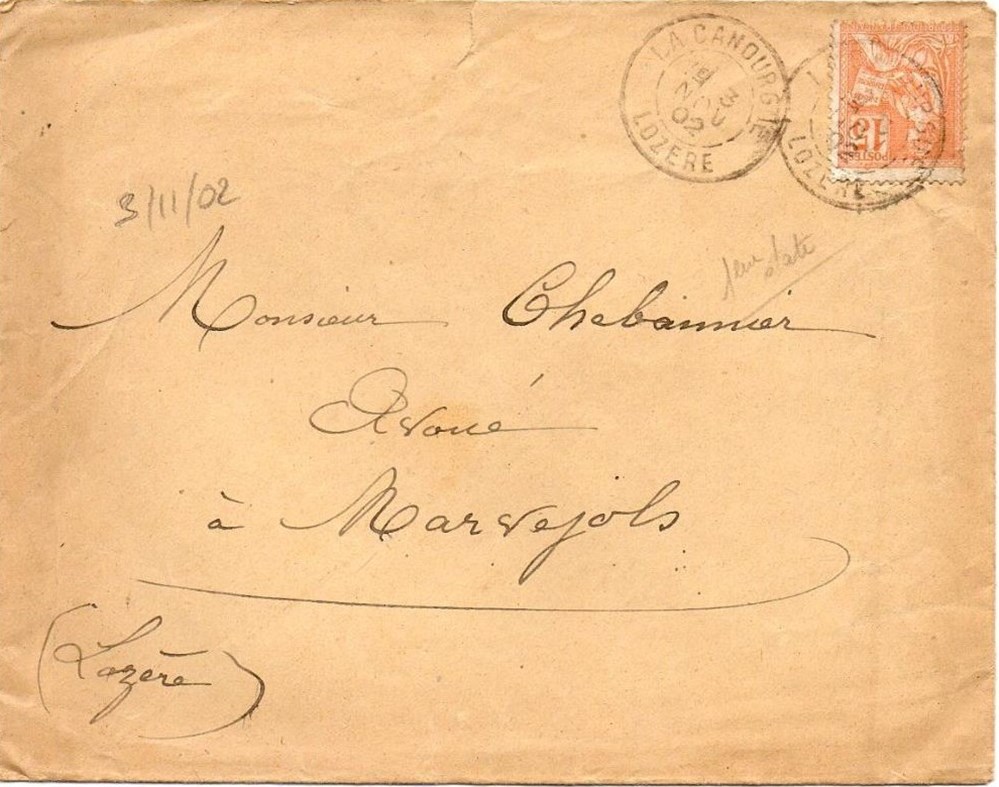 LA CANOURGUE
3
NOV
02
LOZERE
LOZERE
15
POSTES
3/11/02
Monsieur Chebannier
Avoué
à Marvejols
(Lozère)